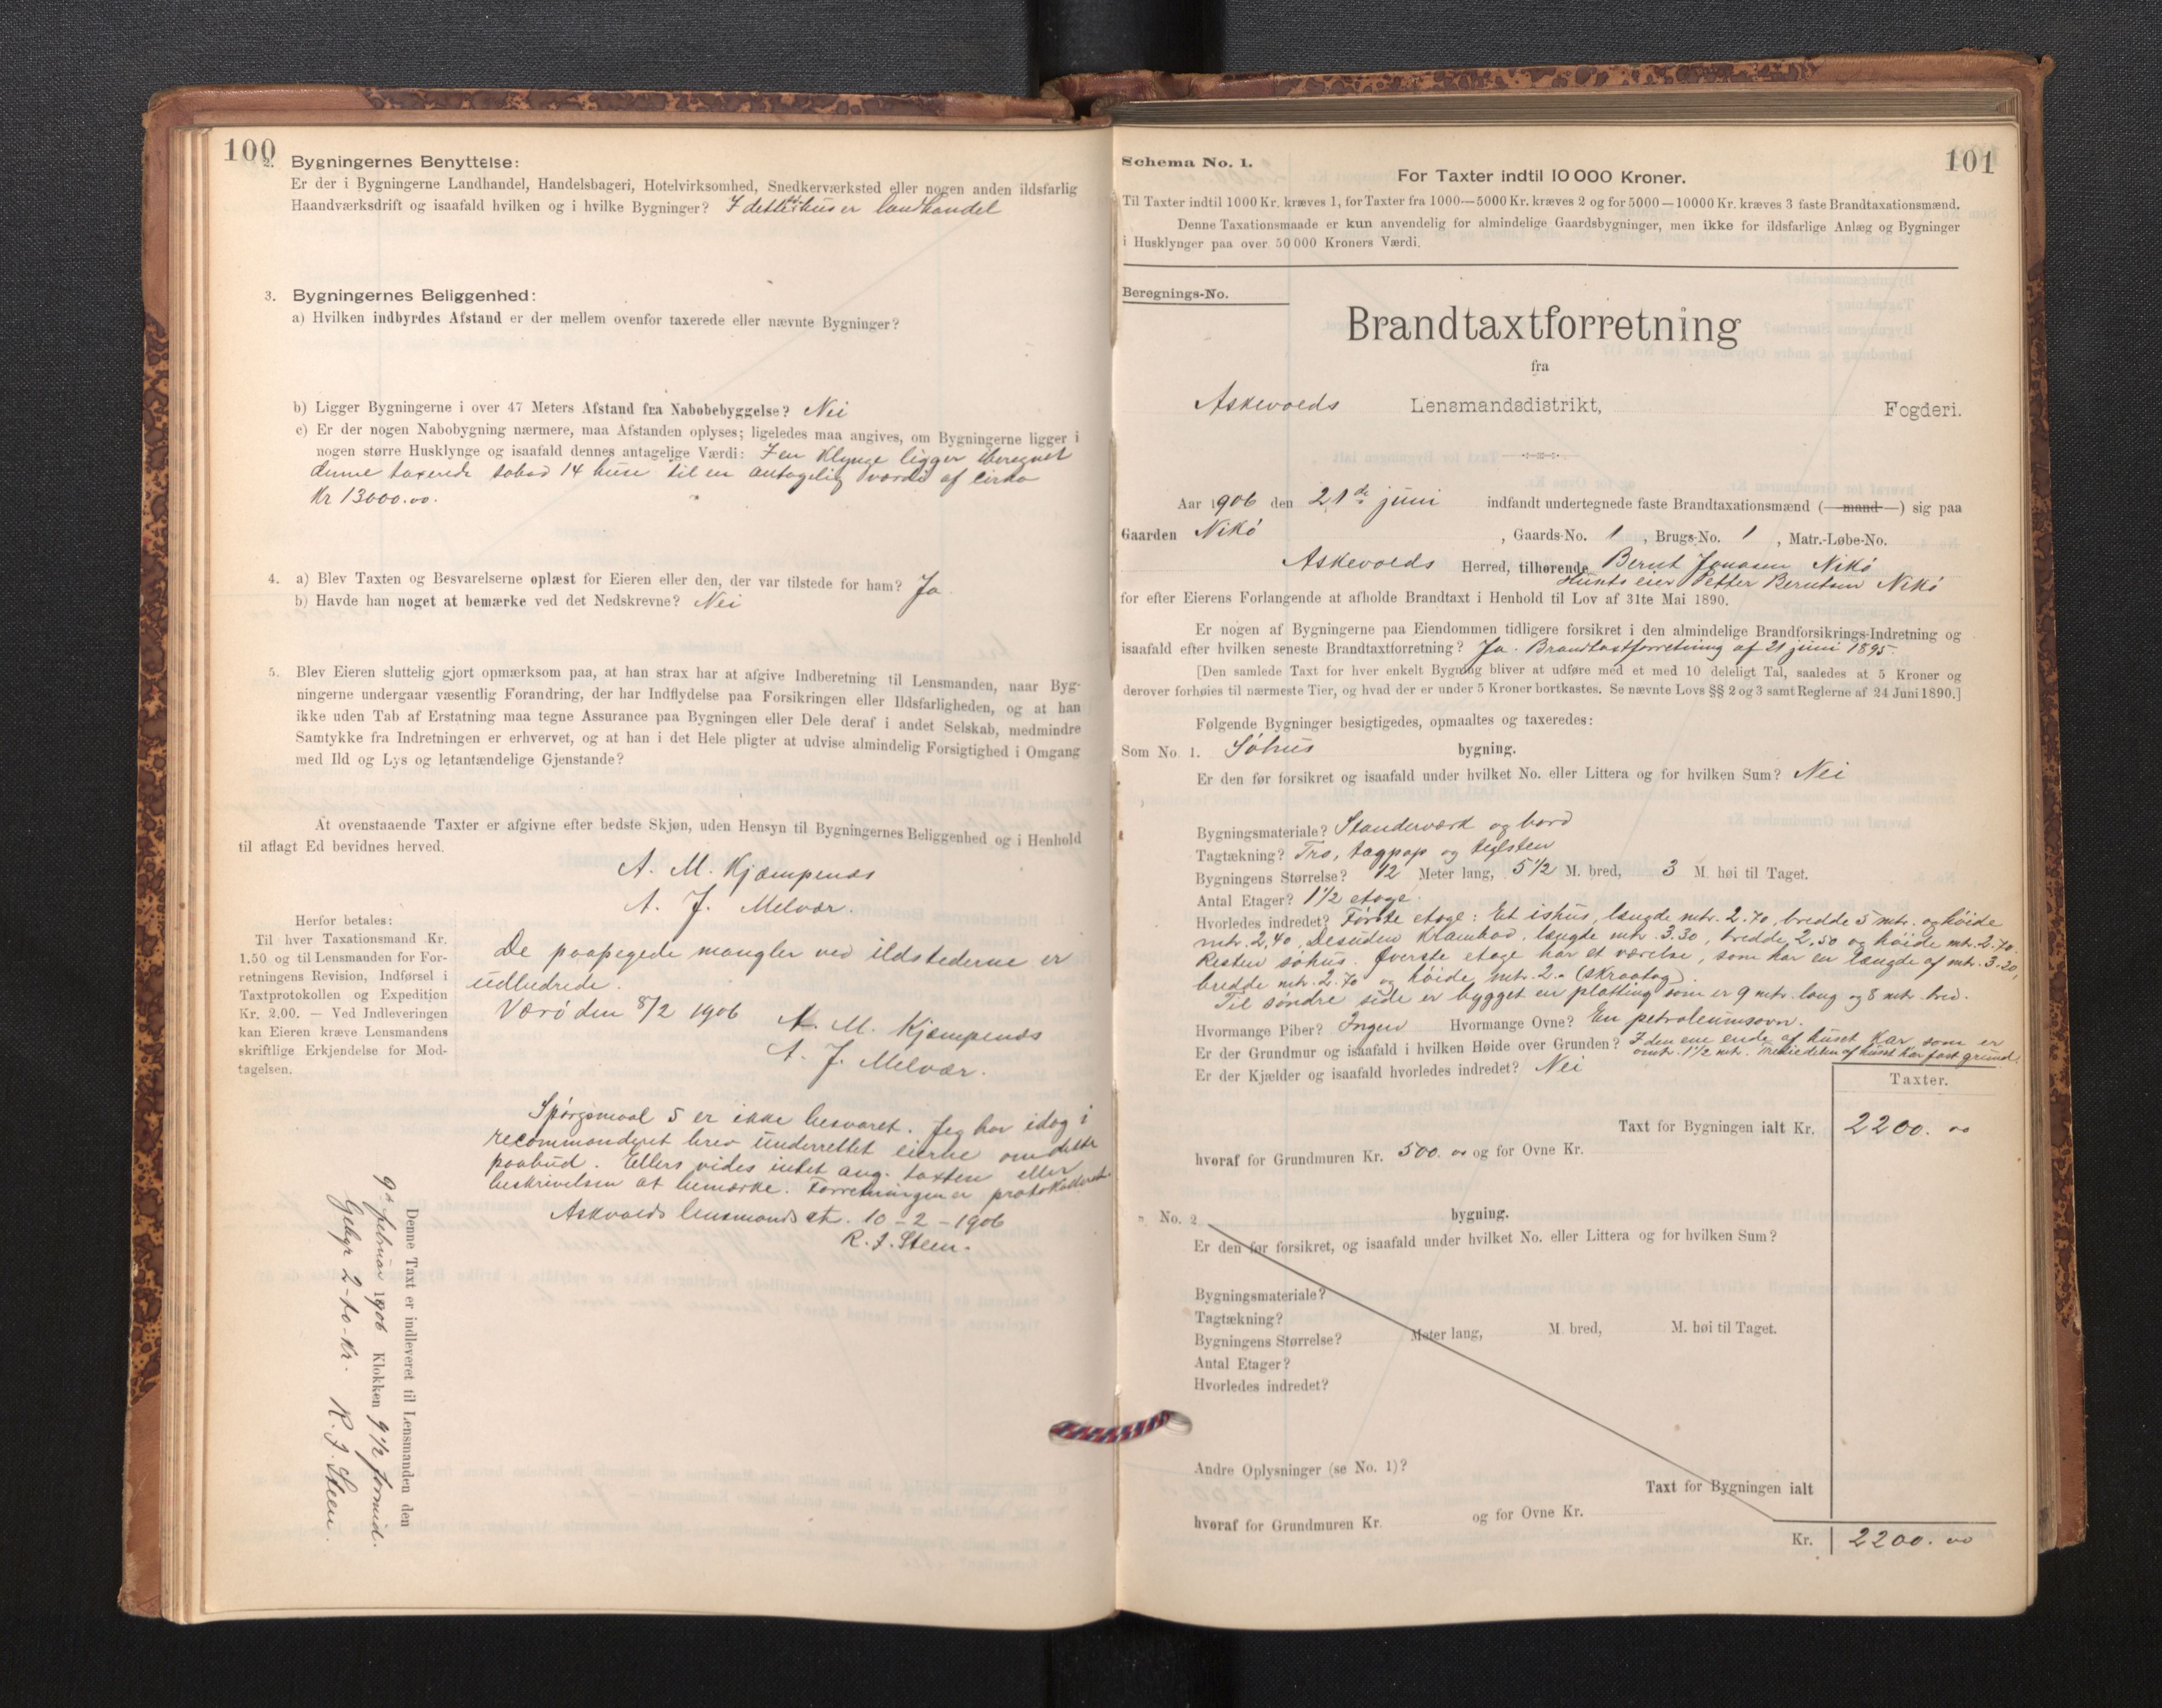 100
2. Bygningernes Benyttelse:
Er der i Bygningerne Landhandel, Handelsbageri, Hotelvirksomhed, Snedkerværksted eller nogen anden ildsfarlig
Haandværksdrift og isaafald hvilken og i hvilke Bygninger? I dette hus er landhandel
3. Bygningernes Beliggenhed:
a) Hvilken indbyrdes Afstand er der mellem ovenfor taxerede eller nævnte Bygninger?
b) Ligger Bygningerne i over 47 Meters Afstand fra Nabobebyggelse? Nei
c) Er der nogen Nabobygning nærmere, maa Afstanden oplyses; ligeledes maa angives, om Bygningerne ligger i
nogen større Husklynge og isaafald dennes antagelige Værdi: I en klynge ligger iberegnet
denne taxerede sobod 14 huse til en antagelig værdi af cirka
Kr 13000.00.
4. a) Blev Taxten og Besvarelserne oplæst for Eieren eller den, der var tilstede for ham? Ja
b) Havde han noget at bemærke ved det Nedskrevne? Nei
5. Blev Eieren sluttelig gjort opmærksom paa, at han strax har at afgive Indberetning til Lensmanden, naar Byg-
ningerne undergaar væsentlig Forandring, der har Indflydelse paa Forsikringen eller Ildsfarligheden, og at han
ikke uden Tab af Erstatning maa tegne Assurance paa Bygningen eller Dele deraf i andet Selskab, medmindre
Samtykke fra Indretningen er erhvervet, og at han i det Hele pligter at udvise almindelig Forsigtighed i Omgang
med Ild og Lys og letantændelige Gjenstande?
At ovenstaaende Taxter er afgivne efter bedste Skjøn, uden Hensyn til Bygningernes Beliggenhed og i Henhold
til aflagt Ed bevidnes herved.
A. M. Kjæmpenes
A. J. Melvær.
Herfor betales:
Til hver Taxationsmand Kr.
1,50 og til Lensmanden for For-
retningens Revision, Indførsel i
Taxtprotokollen og Expedition
Kr. 2,00. — Ved Indleveringen
kan Eieren kræve Lensmandens
skriftlige Erkjendelse for Mod-
tagelsen.
De paapegede mangler ved ildstederne er
udbedrede.
Værö den 8/2 1906
A. M. Kjæmpenes
A. J. Melvær.
Spörgsmaal 5 er ikke besvaret. Jeg har idag i
recommanderet brev underrettet eierne om dette
paabud. Ellers vides intet ang. taxten eller
beskrivelsen at bemærke. Forretningen er protokolleret
Askvolds lensmandsct. 10-2-1906
R. J. Steen.
Denne Taxt er indleveret til Lensmanden den
9de februar 1906 Klokken 9 1/2 formid.
Gebyr 2-to-kr. R. J. Steen.
101
Schema No. 1.
For Taxter indtil 10 000 Kroner.
Til Taxter indtil 1000 Kr. kræves 1, for Taxter fra 1000—5000 Kr. kræves 2 og for 5000—10000 Kr. kræves 3 faste Brandtaxationsmænd.
Denne Taxationsmaade er kun anvendelig for almindelige Gaardsbygninger, men ikke for ildsfarlige Anlæg og Bygninger
i Husklynger paa over 50 000 Kroners Værdi.
Beregnings-No.
Brandtaxtforretning
fra
Askevolds Lensmandsdistrikt, Fogderi.
Aar 1906 den 21de juni indfandt undertegnede faste Brandtaxationsmænd (—mand—) sig paa
Gaarden Nikö, Gaards-No. 1, Brugs-No. 1, Matr.-Løbe-No.
Askevolds Herred, tilhørende Bernt Jonasen Nikö
Husets eier Petter Berntsen Nikö
for efter Eierens Forlangende at afholde Brandtaxt i Henhold til Lov af 31te Mai 1890.
Er nogen af Bygningerne paa Eiendommen tidligere forsikret i den almindelige Brandforsikrings-Indretning og
isaafald efter hvilken seneste Brandtaxtforretning? Ja. Brandtaxtforretning af 21 juni 1895.
[Den samlede Taxt for hver enkelt Bygning bliver at udføre med et med 10 deleligt Tal, saaledes at 5 Kroner og
derover forhøies til nærmeste Tier, og hvad der er under 5 Kroner bortkastes. Se nævnte Lovs §§ 2 og 3 samt Reglerne af 24 Juni 1890.]
Følgende Bygninger besigtigedes, opmaaltes og taxeredes:
Som No. 1. Söhus bygning.
Er den før forsikret og isaafald under hvilket No. eller Littera og for hvilken Sum? Nei
Bygningsmateriale? Standerværk og bord
Tagtækning? Tro, tagpap og teglsten
Bygningens Størrelse? 12 Meter lang, 5 1/2 M. bred, 3 M. høi til Taget.
Antal Etager? 1 1/2 etage.
Hvorledes indredet? Förste etage: Et ishus, længde mtr. 2.70, bredde 5 mtr. og höide
mtr. 2,40. Desuden krambod, længde mtr. 3.30, bredde 2.50 og höide mtr. 2.70.
Resten söhus. Överste etage har et værelse, som har en længde af mtr. 3.20,
bredde mtr. 2.70 og höide mtr. 2.- (skraatag).
Til söndre side er bygget en platting som er 9 mtr. lang og 8 mtr. bred.
Hvormange Piber? Ingen Hvormange Ovne? En petroleumsovn.
Er der Grundmur og isaafald i hvilken Høide over Grunden? I den ene ende af huset kar som er
omtr. 1 1/2 mtr. Mesteden af huset har fast grund.
Er der Kjælder og isaafald hvorledes indredet? Nei
Taxter.
Taxt for Bygningen ialt Kr. 2200.00
hvoraf for Grundmuren Kr. 500.00 og for Ovne Kr.
„ No. 2 bygning.
Er den før forsikret, og isaafald under hvilket No. eller Littera og for hvilken Sum?
Bygningsmateriale?
Tagtækning?
Bygningens Størrelse? Meter lang, M. bred, M. høi til Taget.
Antal Etager?
Hvorledes indredet?
Andre Oplysninger (se No. 1)?
Taxt for Bygningen ialt
hvoraf for Grundmuren Kr. og for Ovne Kr.
Kr. 2200.00